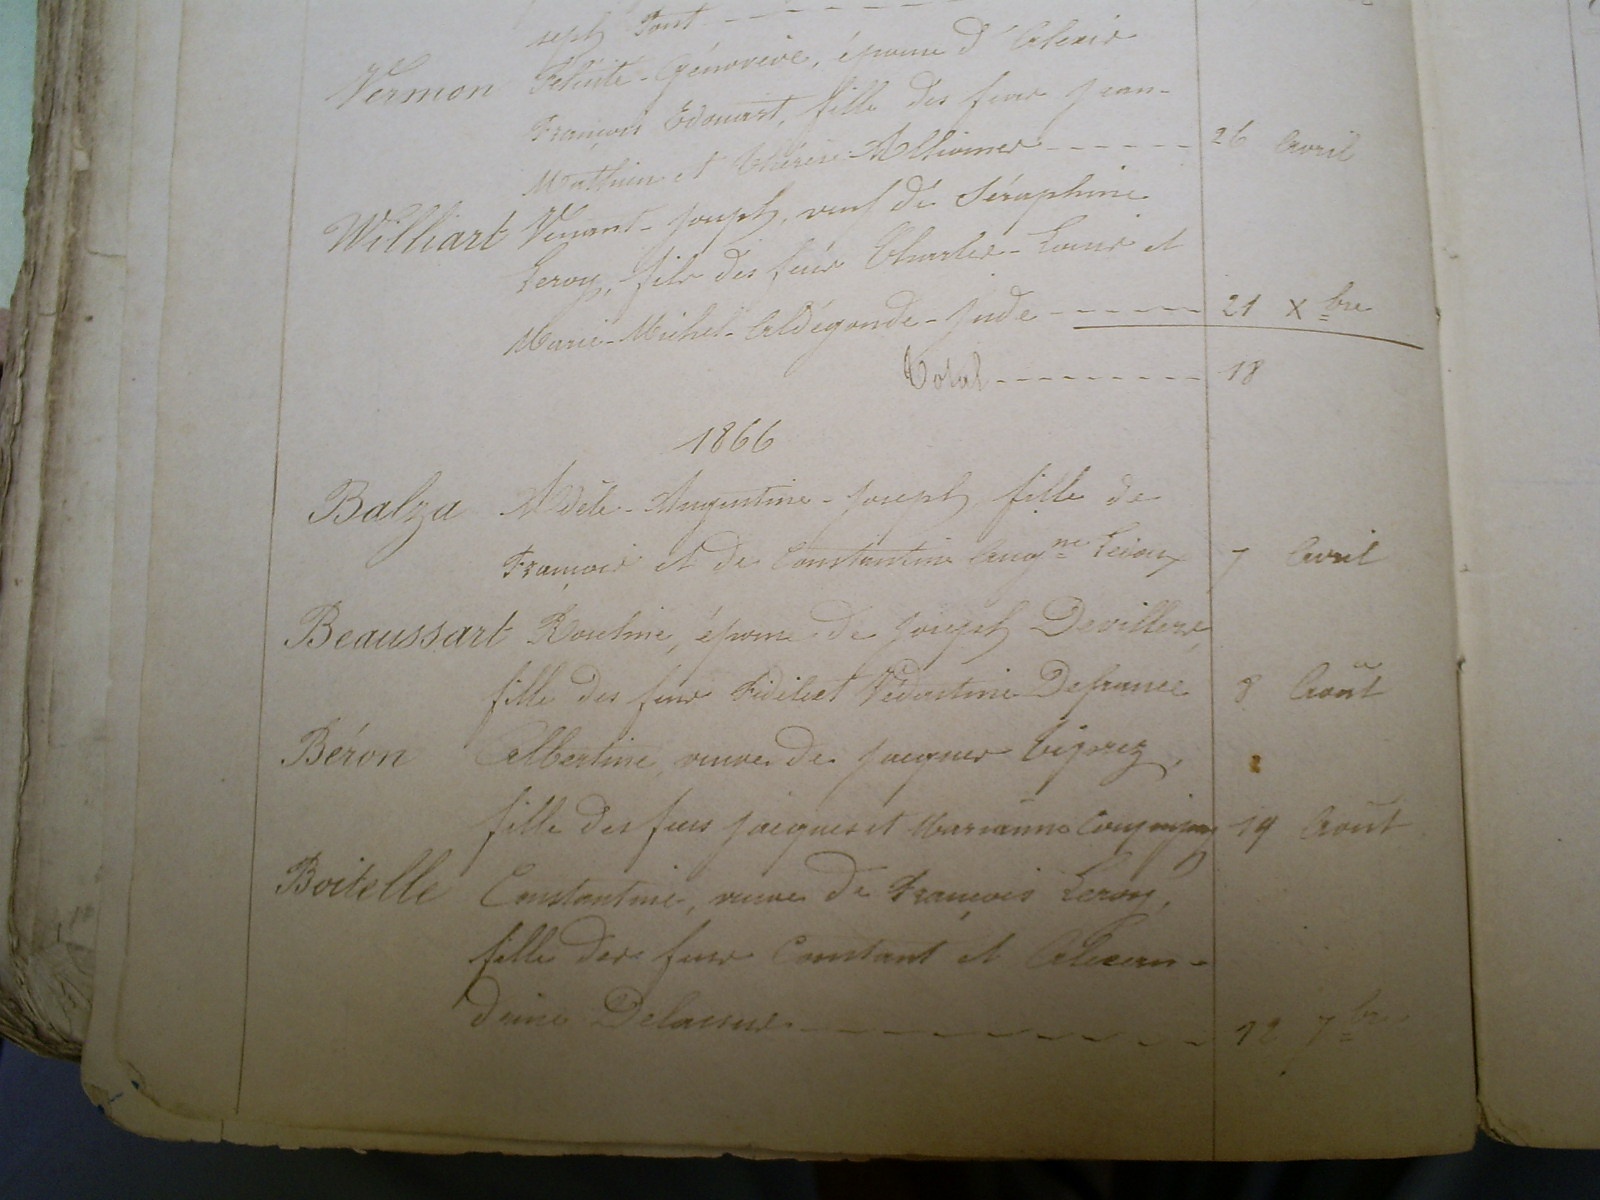 seph Pont
Vermon Félicité-Génoviève, épouse d'Alexis
François Edouart, fille des feus Jean-
Mathieu et Thérèse 26 Avril
Williart Venant-Joseph, veuf de Séraphine
Leroy, fils des feus Charles-Louis et
Marie-Michel-Aldégonde-Jude 21 Xbre
Total 18
1866
Balza Adèle-Augustine-Joseph, fille de
François et de Constantine Augne Leroy 7 Avril
Beaussart Roseline, épouse de Joseph Devillers,
fille des feus Fidèle et Védastine Defrance 8 Août
Béron Albertine, veuve de Jacques
fille des feus Jacques et Marianne 19 Août
Boitelle Constantine, veuve de François Leroy,
fille des feus Constant et Alexan-
drine Delassus 12 7bre